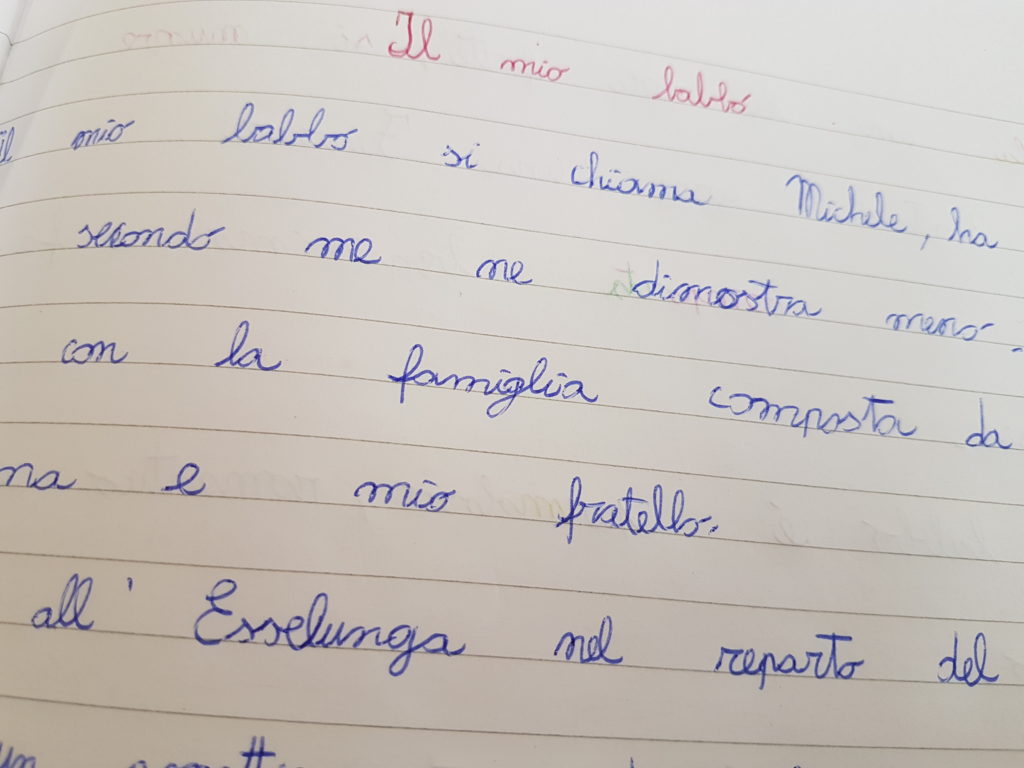 Il mio babbo
il mio babbo si chiama Michele, ha
secondo me ne dimostra meno.
con la famiglia composta da
na e mio fratello.
all' Esselunga nel reparto del
un